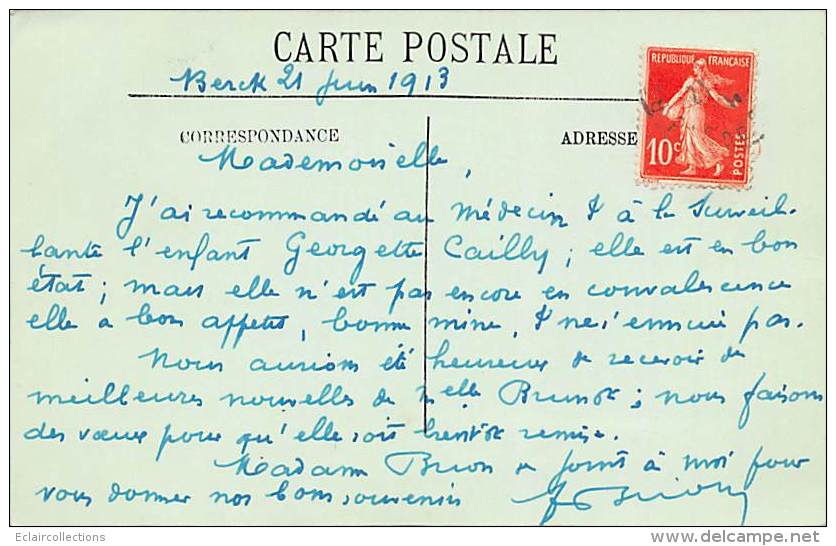 CARTE POSTALE
Berck 21 Juin 1913
REPUBLIQUE FRANÇAISE
10c
POSTES
CORRESPONDANCE
ADRESSE
Mademoiselle,
J'ai recommandé au médecin & à la surveil-
lante l'enfant Georgette Cailly; elle est en bon
état; mais elle n'est pas encore en convalescence
elle a bon appétit, bonne mine, & ne s'ennuie pas.
Nous aurions été heureux de recevoir de
meilleures nouvelles de Melle Brunot; nous faisons
des vœux pour qu'elle soit bientôt remise.
Madame Brion se joint à moi pour
vous donner nos bons souvenirs
Brion
Eclaircollections
www.delcampe.net